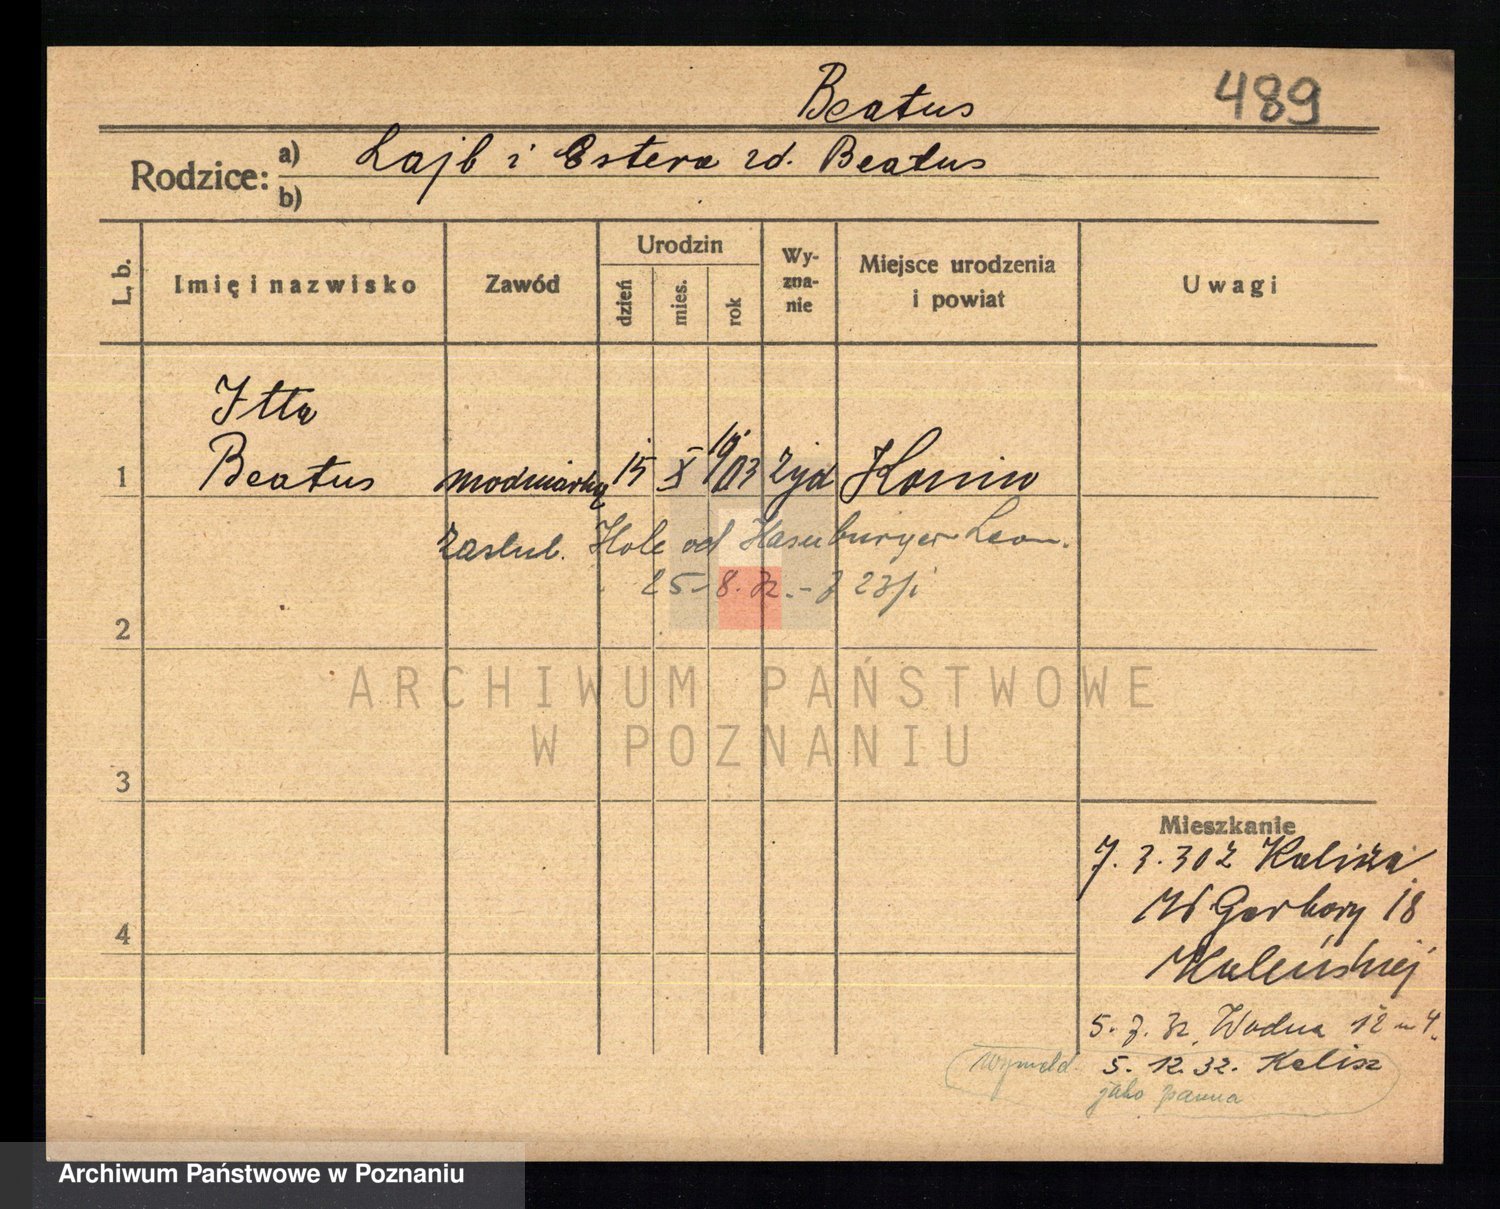 Beatus
489
Rodzice: a) Lajb i Estera zd. Beatus
b)
L. b. Imię i nazwisko Zawód Urodzin dzień mies. rok Wyznanie Miejsce urodzenia i powiat Uwagi
Itta
1 Beatus modniarka 15 X 1903 żyd Konin
zaślub. Hole od Hasenburger Leon.
25-8. 32. -
2
ARCHIWUM PAŃSTWOWE
W POZNANIU
3
Mieszkanie
7. 3. 30 z Kalisza
W Garbary 18
4
5. 7. 32. Wodna 12 m 4.
wymeld. 5. 12. 32. Kalisz
jako panna
Archiwum Państwowe w Poznaniu